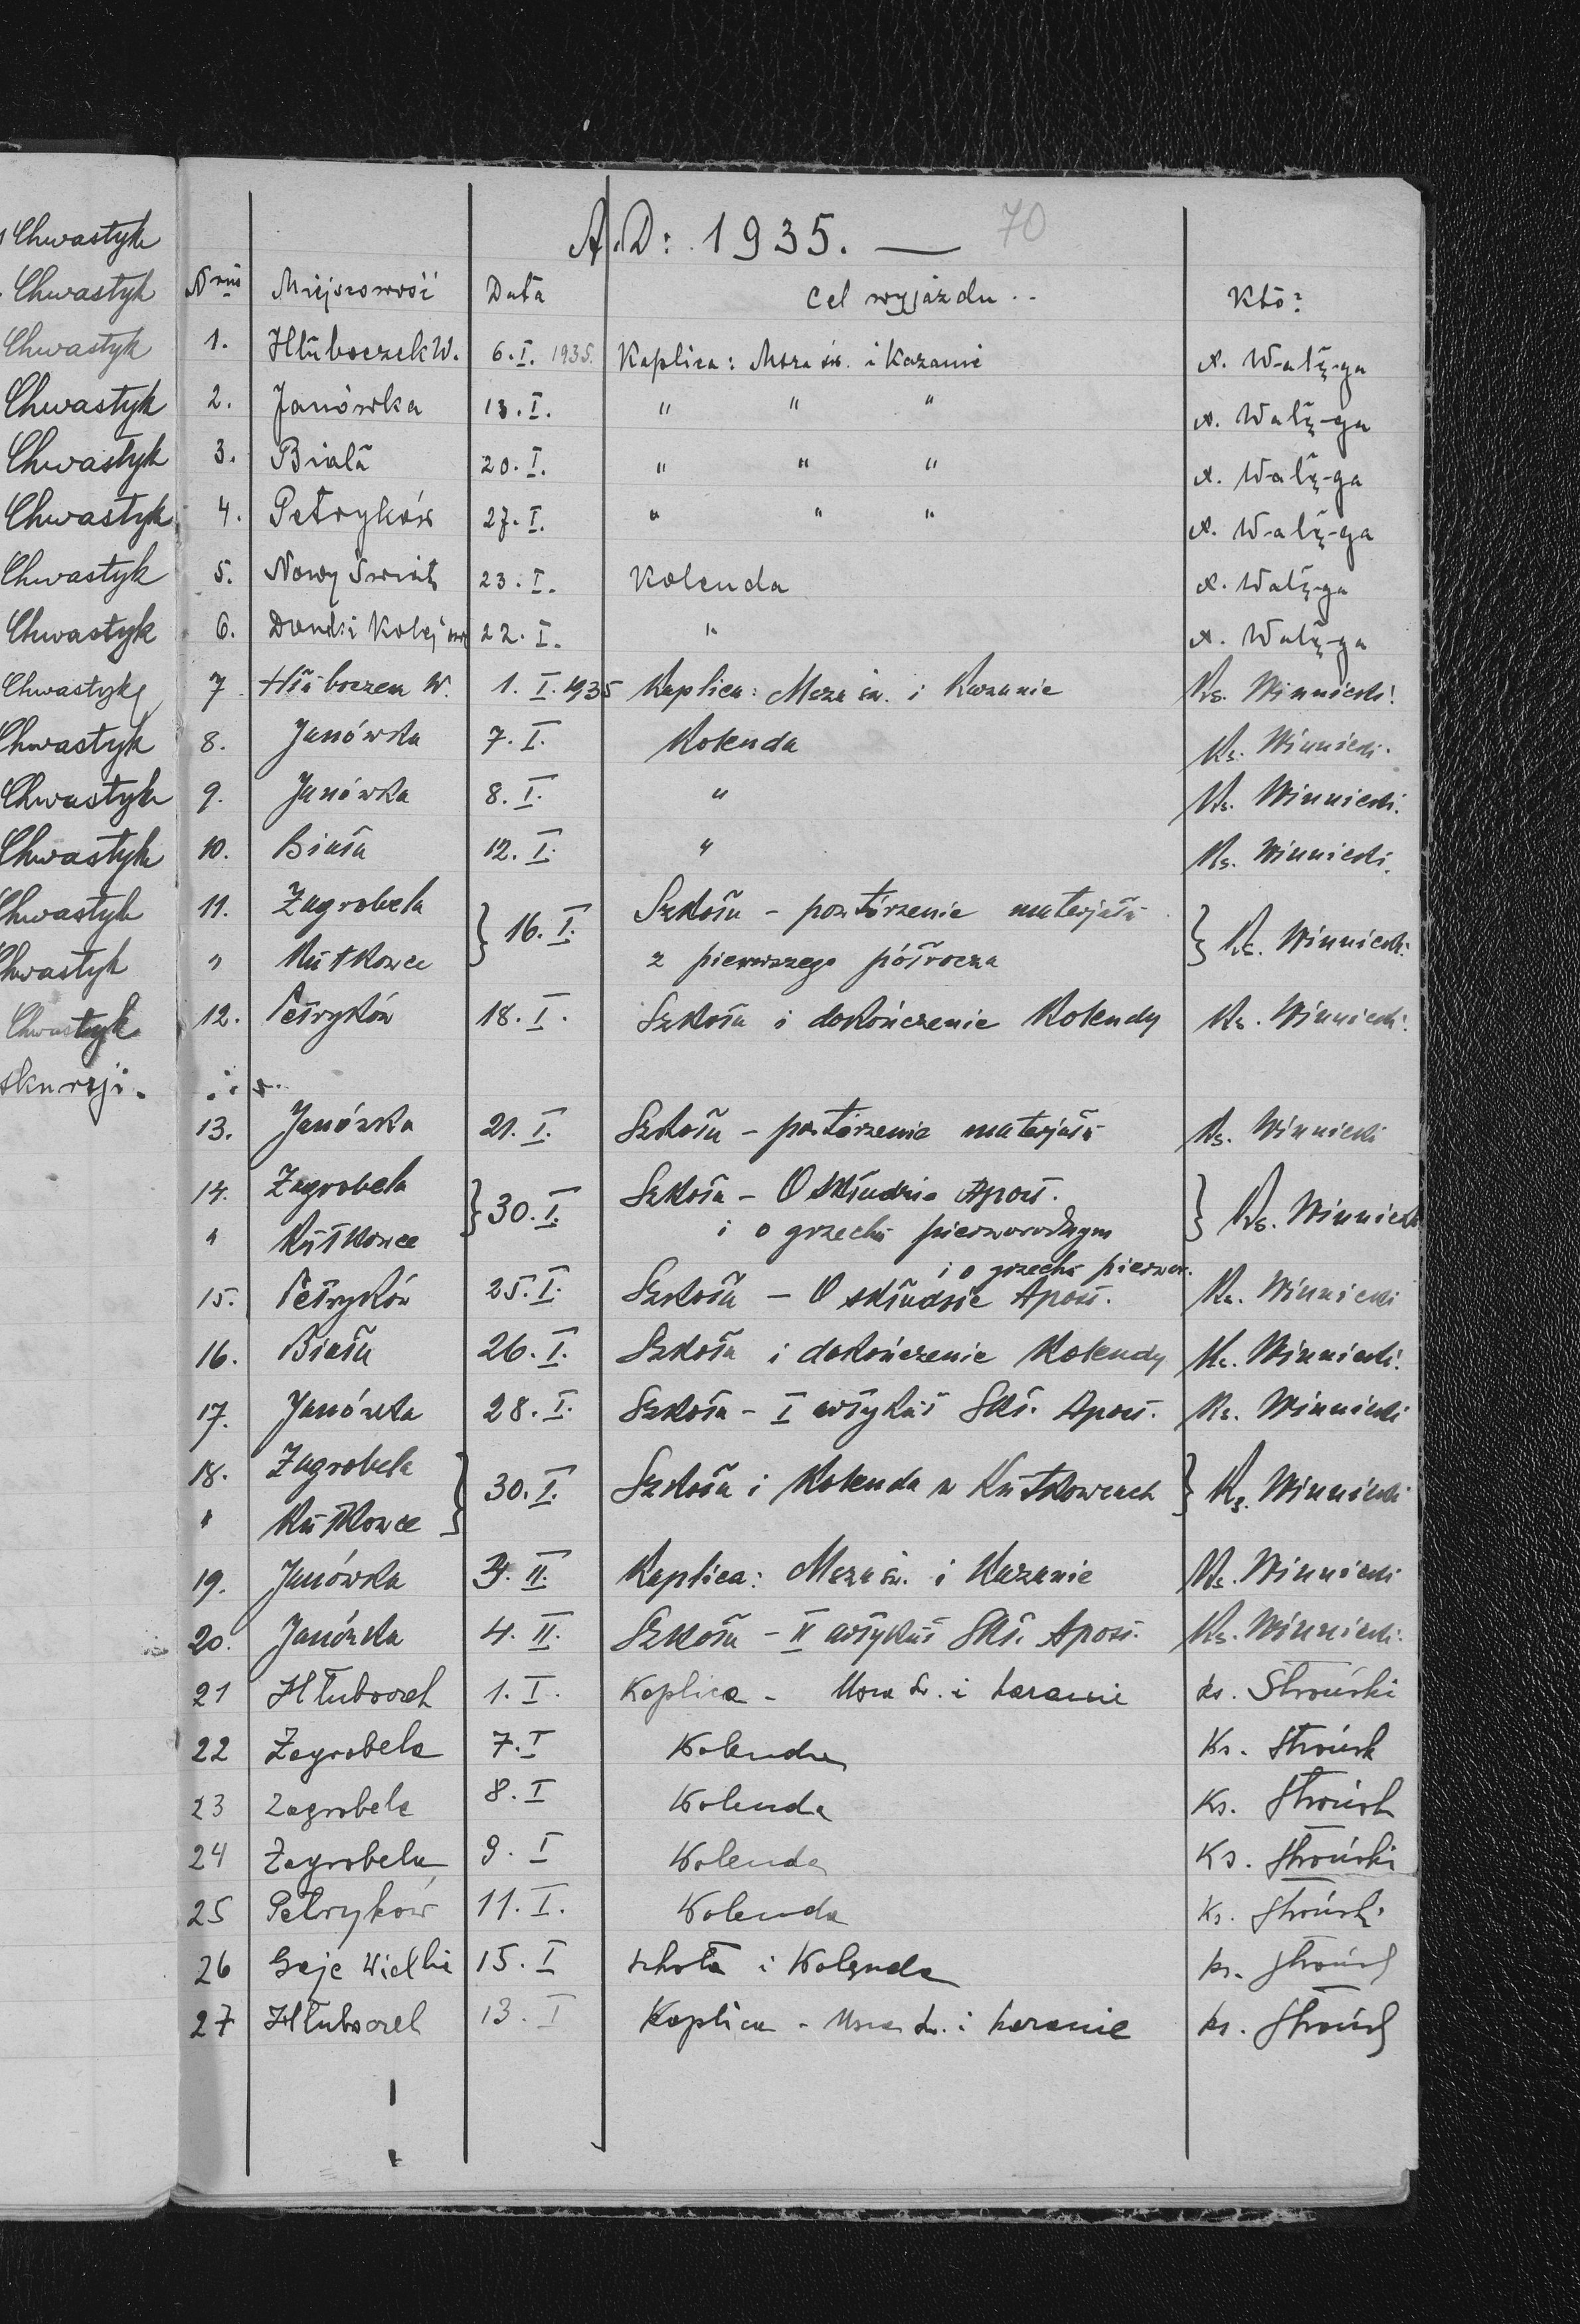 Chwastyk
Chwastyk
Chwastyk
Chwastyk
Chwastyk
Chwastyk
Chwastyk
Chwastyk
Chwastyk
Chwastyk
Chwastyk
Chwastyk
Chwastyk
Chwastyk
Chwastyk
A.D: 1935. — 70
Nrus Miejscowość Data Cel wyjazdu .. Kto?
1. Hłuboczek W. 6.I. 1935. Kaplica: Msza św. i Kazanie X. Wałę-ga
2. Janówka 13.I. " " " X. Wałę-ga
3. Biała 20.I. " " " X. Wałę-ga
4. Petryków 27.I. " " " X. Wałę-ga
5. Nowy Świat 23.I. Kolenda X. Wałę-ga
6. Domki Kolejow 22.I. " X. Wałę-ga
7 Hłuboczek W. 1.I.1935 Kaplica: Msza św. i Kazanie Ks. Winnicki.
8. Janówka 7.I. Kolenda Ks. Winnicki.
9. Janówka 8.I. " Ks. Winnicki.
10. Biała 12.I. " Ks. Winnicki.
11. Zagrobela } 16.I. Szkoła - powtórzenie materjału } Ks. Winnicki.
" Kutkowce z pierwszego półrocza
12. Petryków 18.I. Szkoła i dokończenie Kolendy Ks. Winnicki.
13. Janówka 21.I. Szkoła - powtórzenie materjału Ks. Winnicki
14. Zagrobela } 30.I. Szkoła - O składzie Apost. } Ks. Winnicki
" Kutkowce i o grzechu pierworodnym
i o grzechu pierwor.
15. Petryków 25.I. Szkoła - O składzie Apost. Ks. Winnicki
16. Biała 26.I. Szkoła i dokończenie Kolendy Ks. Winnicki.
17. Janówka 28.I. Szkoła - I artykuł Skł. Apost. Ks. Winnicki
18. Zagrobela } 30.I. Szkoła i Kolenda w Kutkowcach } Ks. Winnicki
" Kutkowce
19. Janówka 3.II. Kaplica: Msza św. i Kazanie Ks. Winnicki
20. Janówka 4.II. Szkoła - II artykuł Skł. Apost. Ks. Winnicki.
21 Hłuboczek 1.I. Kaplica - Msza św. i kazanie ks. Stroński
22 Zagrobela 7.I Kolenda Ks. Strońsk
23 Zagrobela 8.I Kolenda Ks. Strońsk
24 Zagrobela 9.I Kolenda Ks. Stroński
25 Petryków 11.I. Kolenda Ks. Stroński
26 Gaje Wielkie 15.I szkoła i Kolęnda ks. Strońsk
27 Hłuboczek 13.I Kaplica - Msza św. i kazanie ks. Strońsk